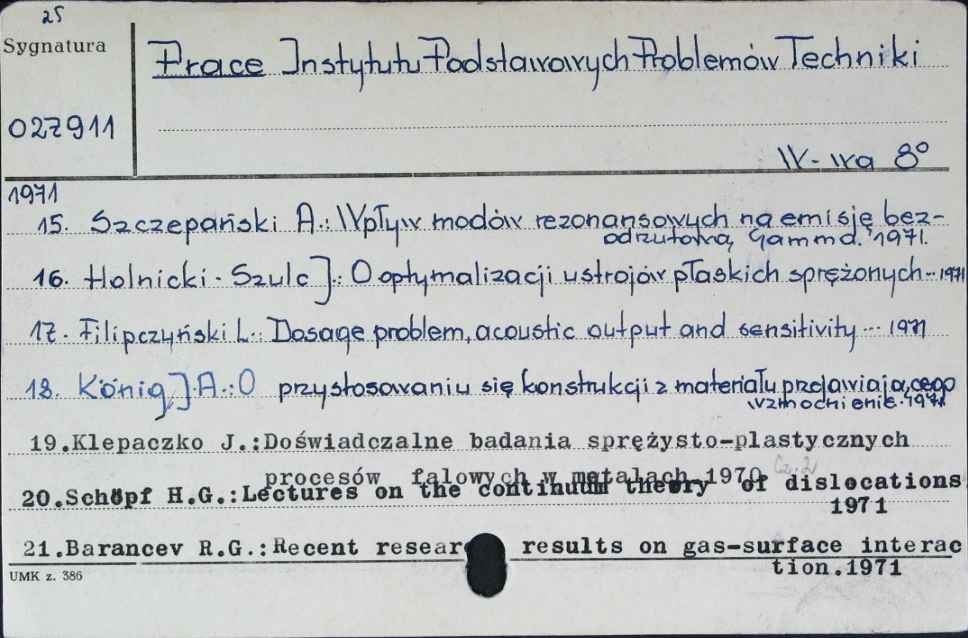 25
Sygnatura
Prace Instytutu Podstawowych Problemów Techniki
027911
W-wa 8°
1971
15. Szczepański A.: Wpływ modów rezonansowych na emisję bez-
odrzutową Gamma. 1971.
16. Holnicki-Szulc J.: O optymalizacji ustrojów płaskich sprężonych... 1971
17. Filipczyński L.: Dosage problem, acoustic output and sensitivity... 1971
18. König J.A.: O przystosowaniu się konstrukcji z materiału przejawiającego
wzmocnienie. 1971
19.Klepaczko J.:Doświadczalne badania sprężysto-plastycznych
procesów falowych w metalach 1970 Cz.2
20.Schöpf H.G.:Lectures on the continuum theory of dislocations
1971
21.Barancev R.G.:Recent resear results on gas-surface interac
tion.1971
UMK z. 386